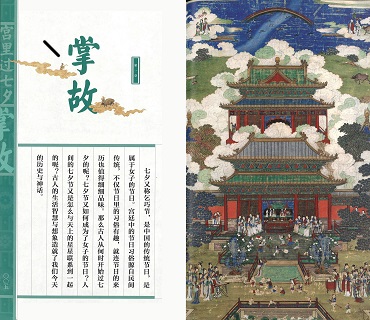 宫里过七夕
掌故
掌故
七夕又称乞巧节，是中国的传统节日，是
属于女子的节日。宫廷中的节日习俗源自民间
传统，不仅节日里的习俗有趣，就连节日的来
历也值得细细品味。那么古人从何时开始过七
夕的呢？七夕节又如何成为了女子的节日？人
间的七夕节又是怎么与天上的星星联系到一起
的呢？古人的生活智慧与想象造就了我们今天
的历史与神话。